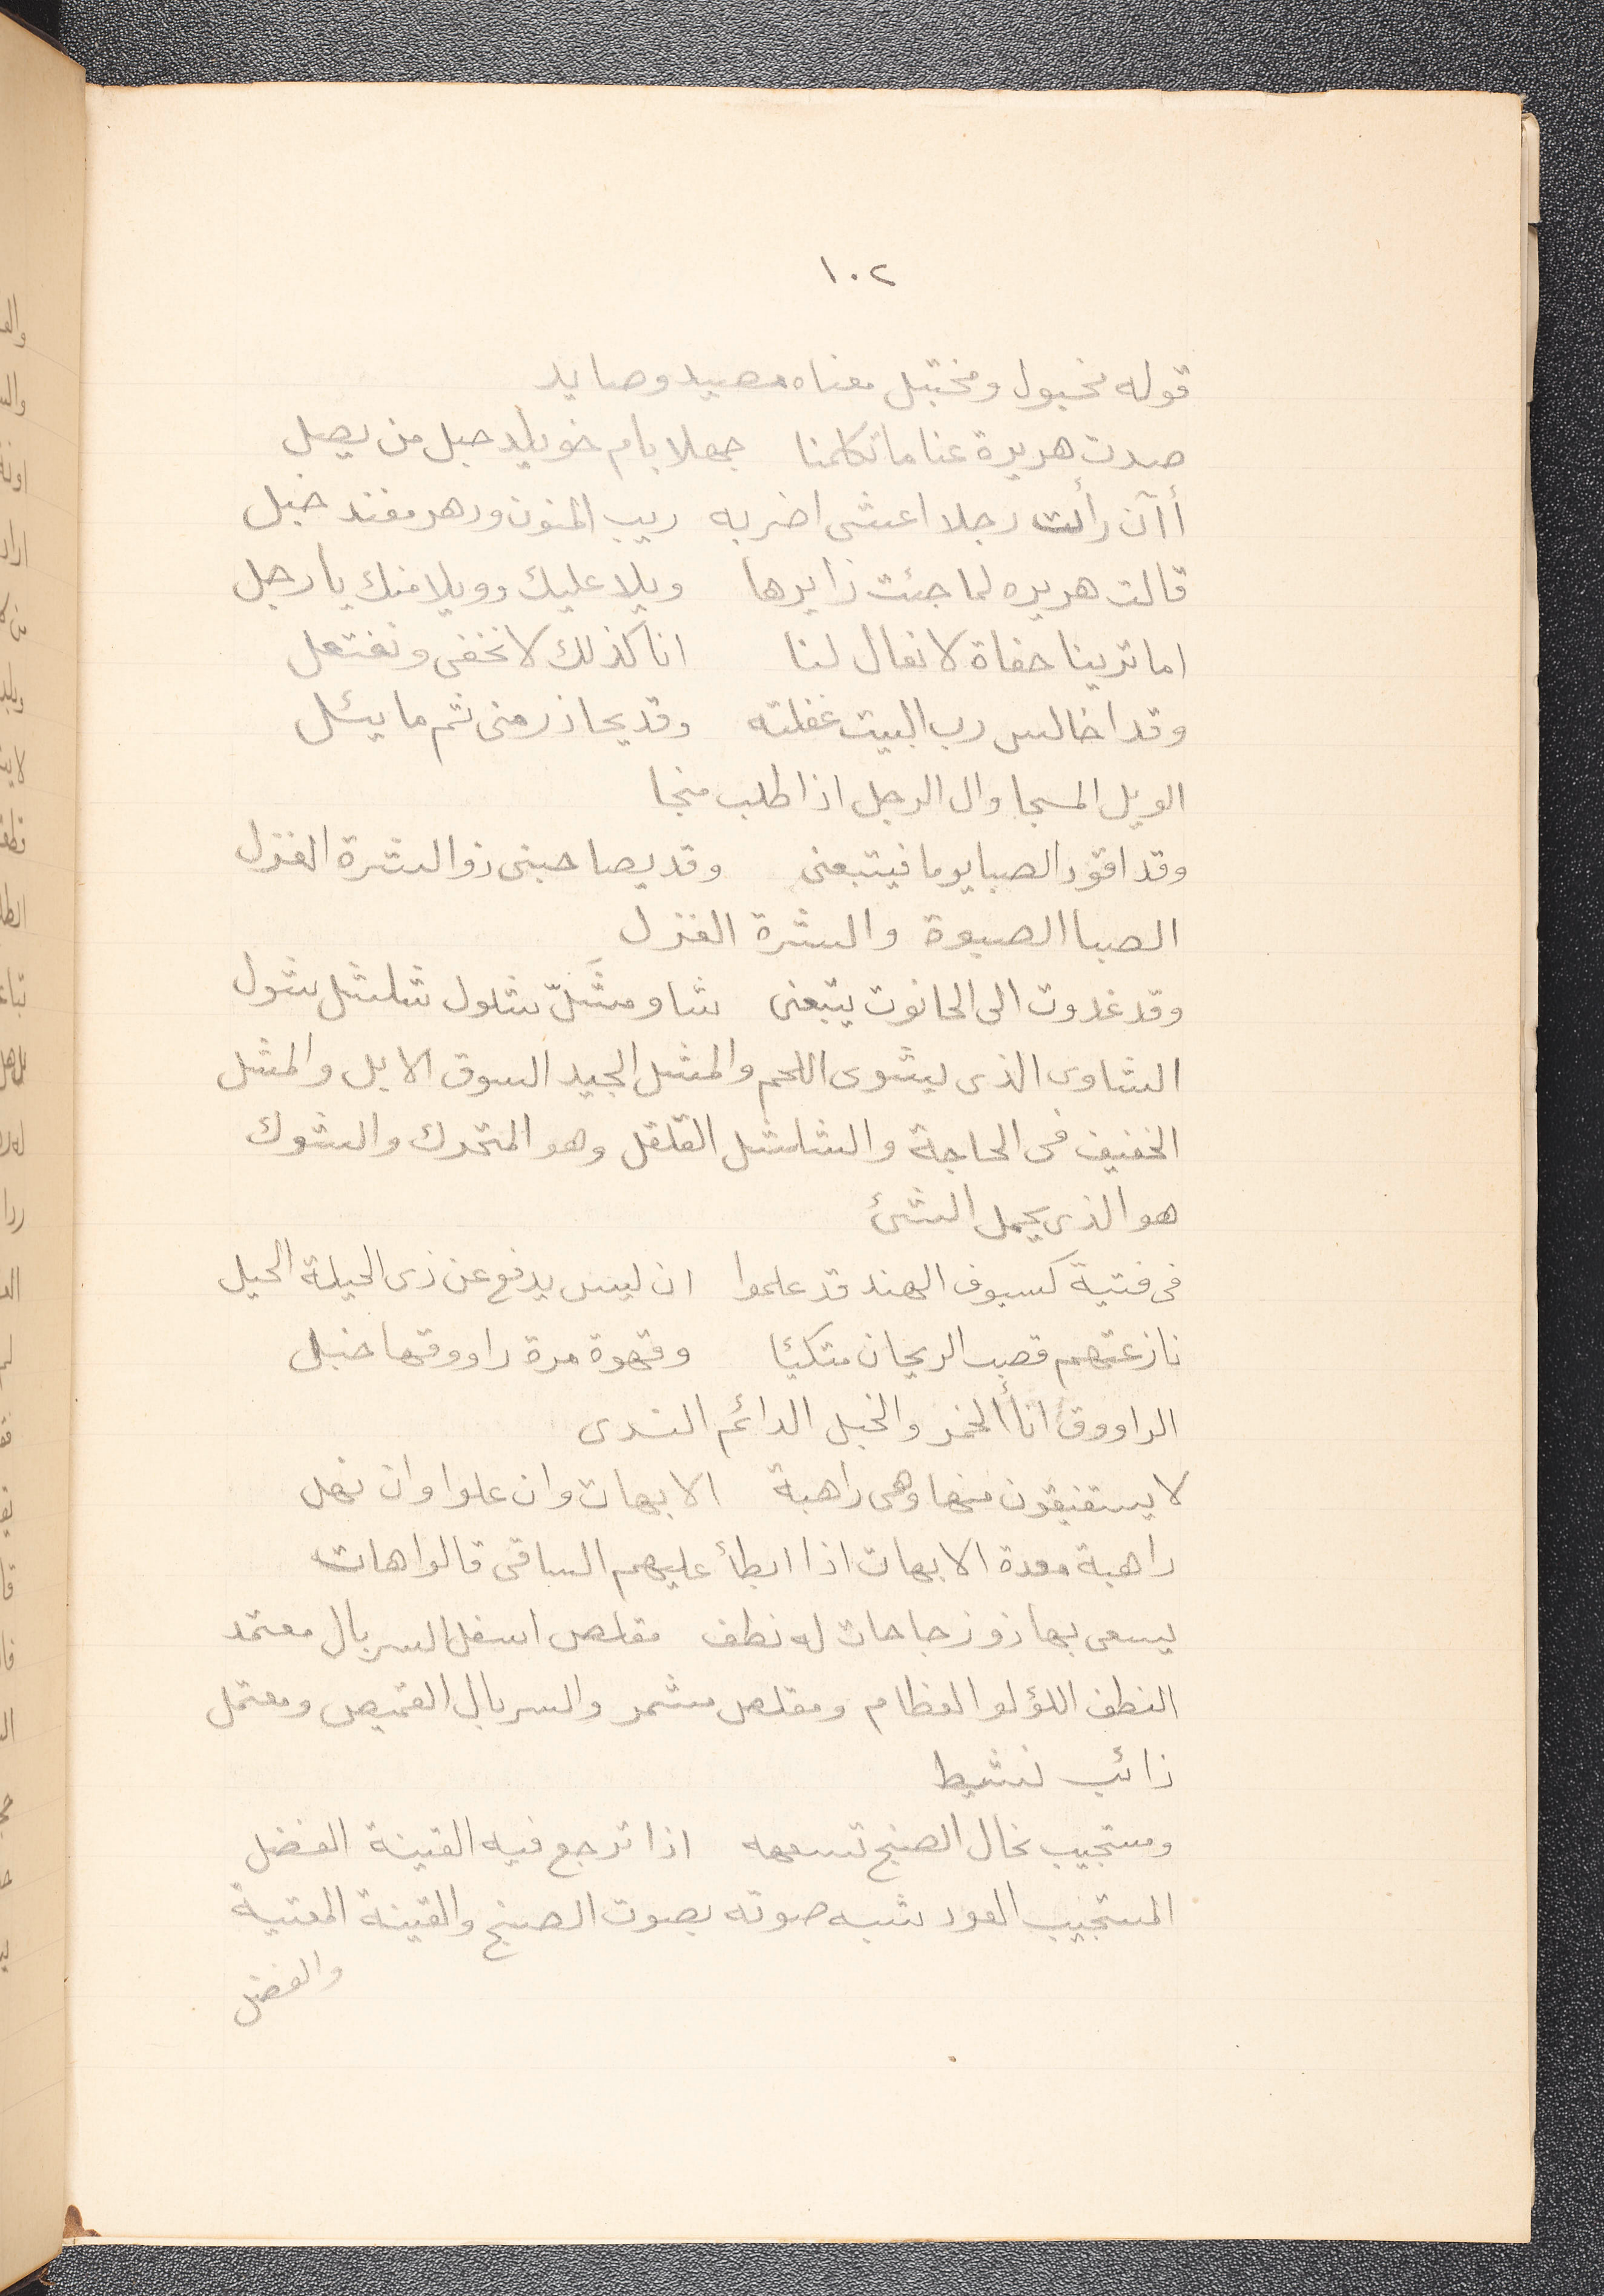 ١٠٢
قوله مخبول ومختبل معناه مصيد وصايد
صدت هريرة عنا ما تكلمنا جهلا بام خويلد حبل من يصل
أآن رأت رجلا اعشى اضر به ريب المنون ودهر مفند خبل
قالت هريره لما جئت زايرها ويلا عليك وويلا منك يا رجل
اما ترينا حفاة لا نعال لنا انا كذلك لا نخفى ونفتعل
وقد اخالس رب البيت غفلته وقد يحاذر منى ثم ما يئل
الويل المسجا وال الرجل اذا طلب منجا
وقد اقود الصبا يوما فيتبعنى وقد يصاحبنى ذو الشرة الغزل
الصبا الصبوة والشرة الغزل
وقد غدوت الى الحانوت يتبعنى شاو مشَلّ شلول شلشل شول
الشاوى الذى يشوى اللحم والمشل الجيد السوق الابل والمشل
الخفيف فى الحاجة والشلشل القلقل وهو المتحرك والشوك
هو الذى يحمل الشئ
فى فتية كسيوف الهند قد علموا ان ليس يدفع عن ذى الحيلة الحيل
نازعتهم قصب الريحان متكئا وقهوة مرة راووقها خبل
الراووق اناأ الخمر والخبل الدائم الندى
لا يستفيقون منها وهى راهبة الا بهات وان علوا وان نهل
راهبة معدة الا بهات اذا ابطأ عليهم الساقى قالوا هات
يسعى بها ذو زجاجات له نطف مقلص اسفل السربال معتمد
النطف اللؤلو العظام ومقلص مشمر والسربال القميص ومعتمل
ذائب نشيط
ومستجيب نخال الصنج تسمعه اذا ترجع فيه القينة الفضل
المستجيب العود شبه صوته بصوت الصنج والقينة المغنية
والفضل